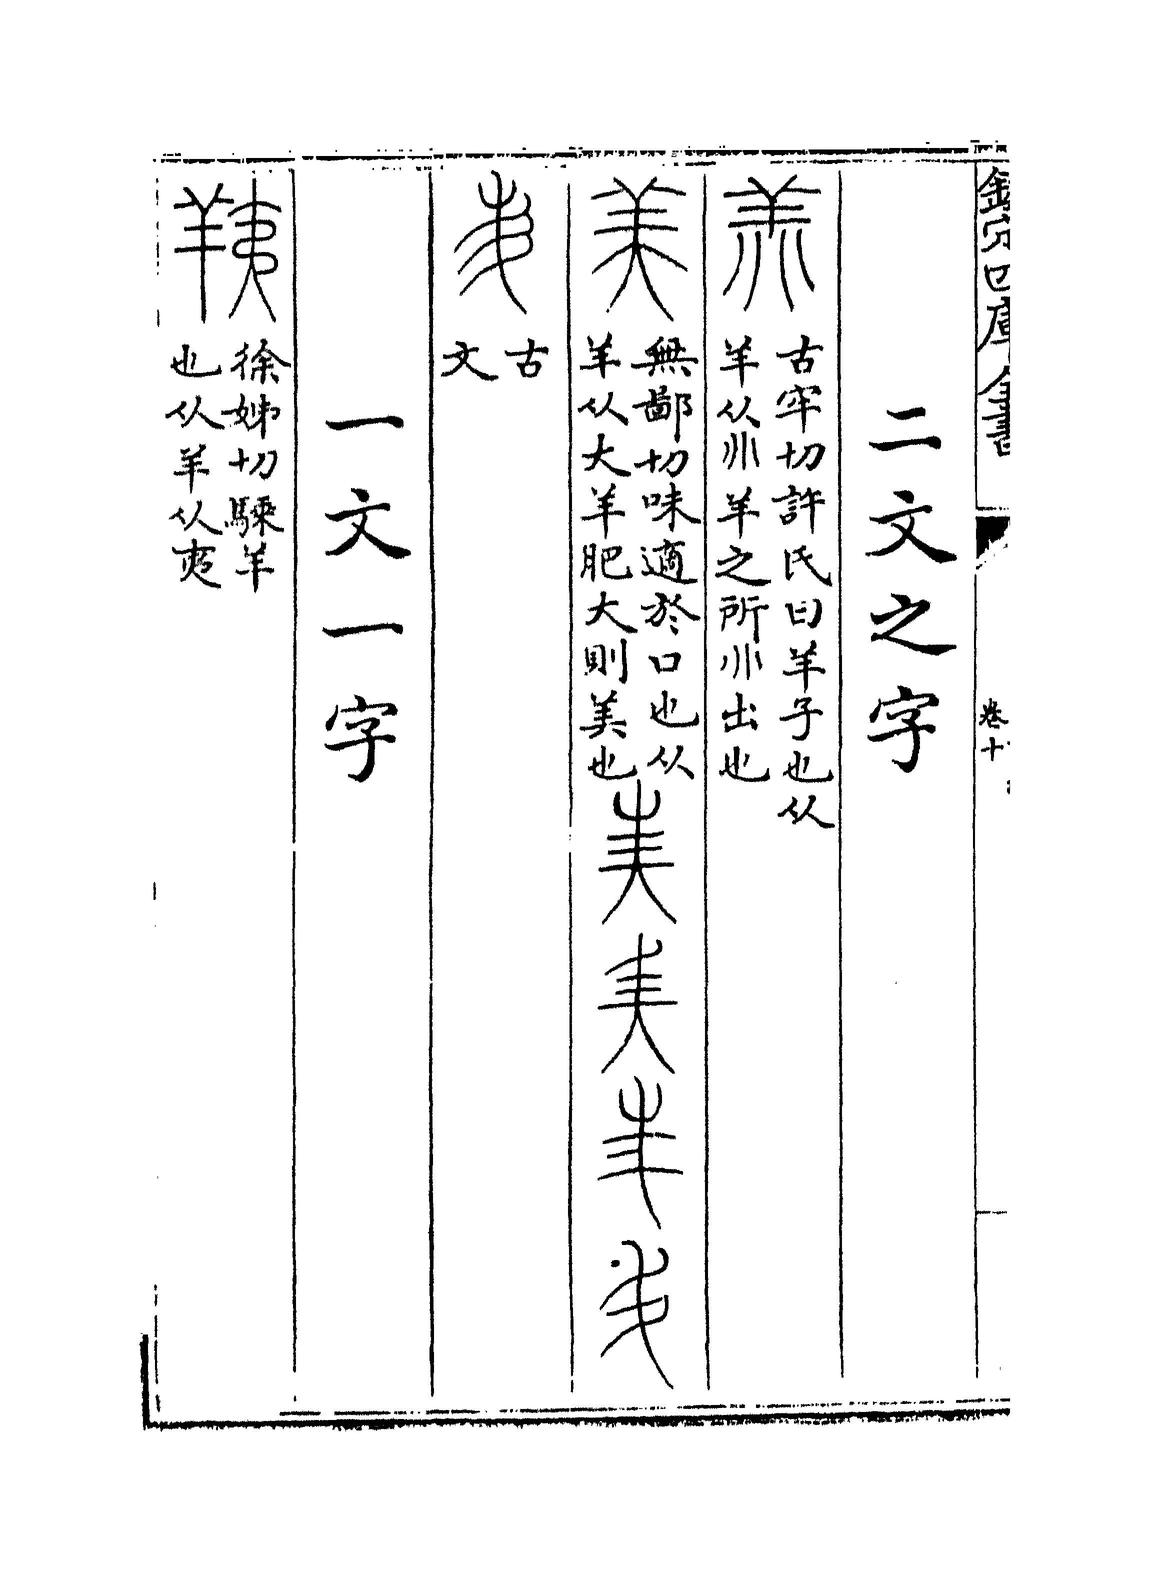 欽定四庫全書
卷十
二文之字
古牢切許氏曰羊子也从
羊从羊之所出也
美
無鄙切味適於口也从
羊从大羊肥大則美也
古
文
一文一字
羠
徐姊切騬羊
也从羊从夷